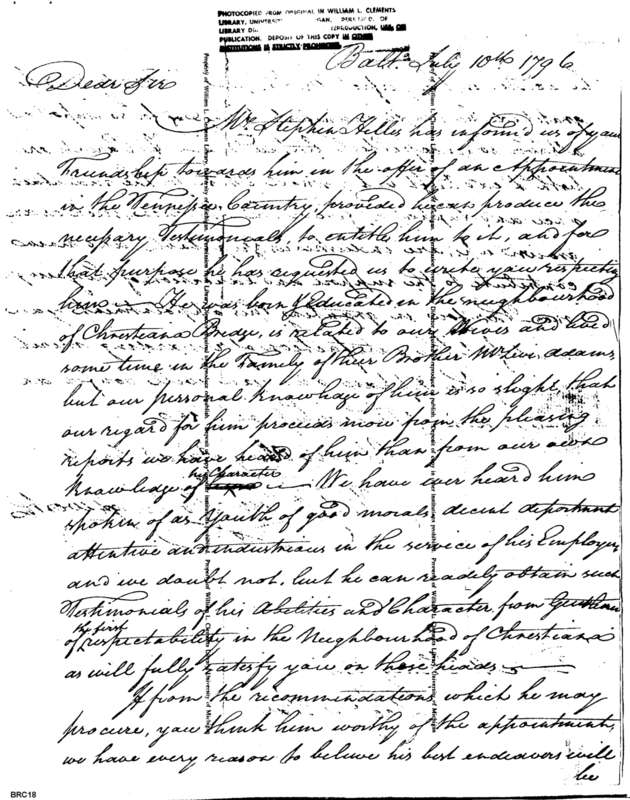 PHOTOCOPIED FROM ORIGINAL IN WILLIAM L. CLEMENTS
LIBRARY, UNIVERSITY GAN.
LIBRARY REPRODUCTION, USE, OR
PUBLICATION. DEPOSIT OF THIS COPY IN OTHER
INSTITUTIONS IS STRICTLY PROHIBITED.
Balto July 10th 1796
Dear Sir
Mr. Stephen Hillis has informd us of your
Friendship towards him in the offer of an Appointment
in the Tennessee Country, provided he can produce the
necessary Testimonials, to entitle him to it, and for
that purpose he has requested us to write you respecting
him — He was born & educated in the neighbourhood
of Christiana Bridge, is related to our Wives and lived
some time in the Family of their Brother Mr Levi Adams
but our personal knowledge of him is so slight, that
our regard for him proceeds more from the pleasing
reports we have heard of him than from our own
knowledge of his Character — We have ever heard him
spoken of as Youth of good morals, decent deportment
attentive and industrious in the service of his Employers
and we doubt not, but he can readily obtain such
Testimonials of his Abilities and Character from Gentlemen
of the first respectability in the Neighbourhood of Christiana
as will fully satisfy you on those heads —
If from the recommendations which he may
procure, you think him worthy of the appointment,
we have every reason to believe his best endeavers will
be
BRC18